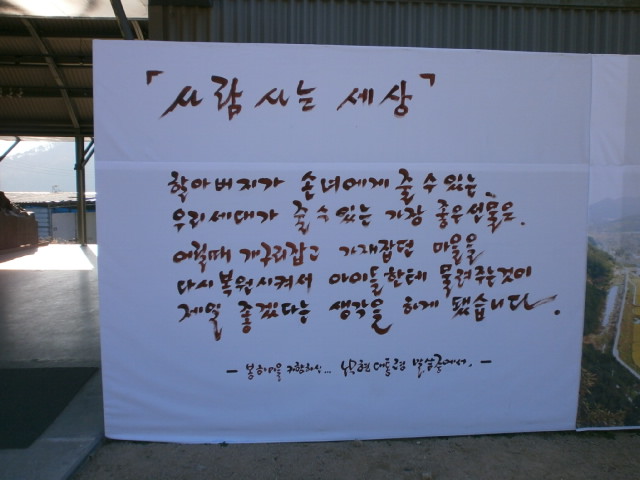 「사람 사는 세상」
할아버지가 손녀에게 줄 수 있는
우리세대가 줄 수 있는 가장 좋은 선물은.
어릴때 개구리잡고 가재잡던 마을을
다시복원시켜서 아이들한테 물려주는것이
제일 좋겠다는 생각을 하게 됐습니다.
- 봉하마을 귀향하신... 노무현 대통령 말씀중에서. -